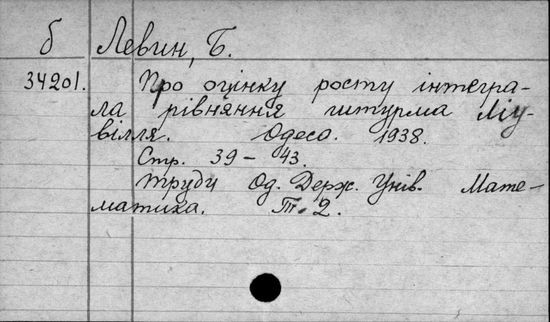 б Левин, Б.
34201. Про оцінку росту інтегра-
ла рівняння штурма Ліу-
вілля. Одеса. 1938.
Стр. 39 - 43.
Труди Од. Держ. Унів. Мате-
матика. Т. 2.